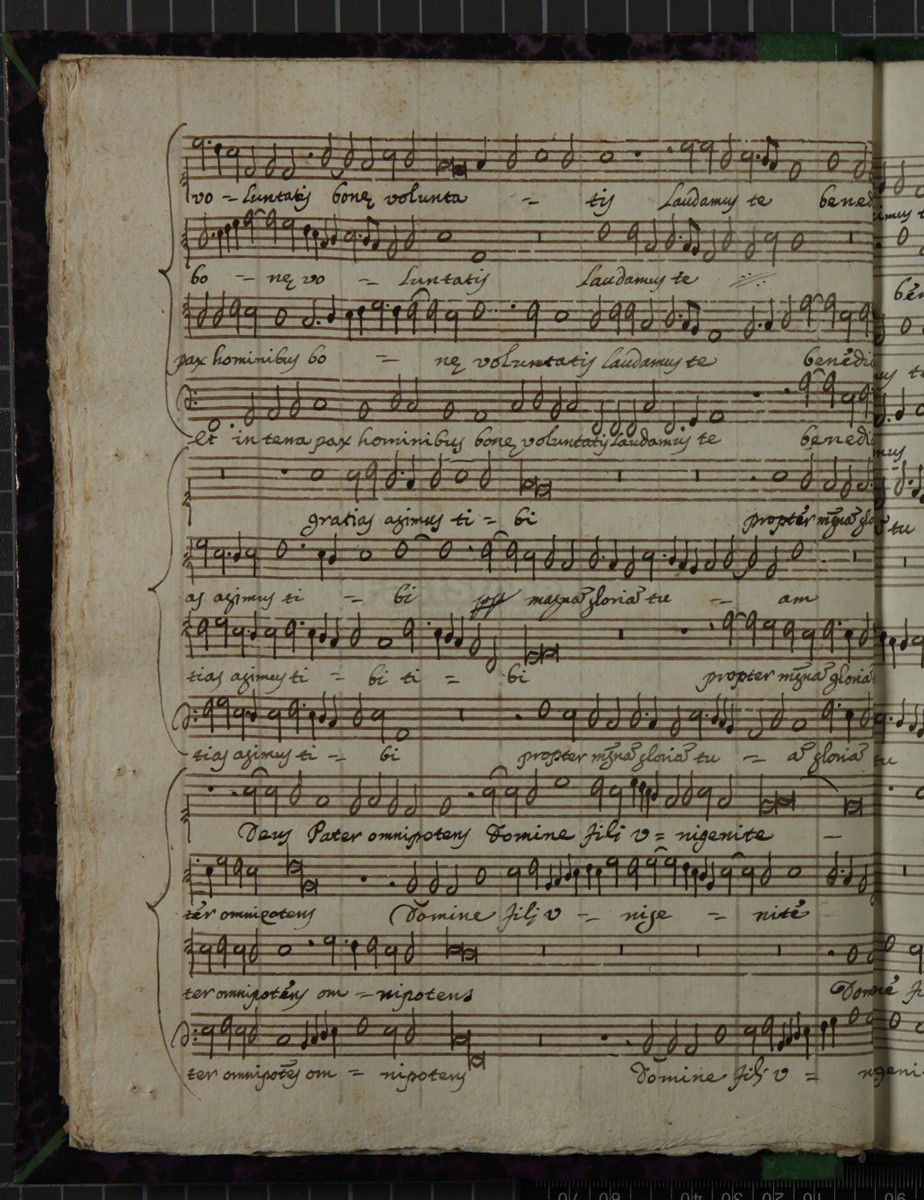 vo - luntatis bonę volunta - tis Laudamus te bened
bo - nę vo - luntatis laudamus te
pax hominibus bo - nę voluntatis laudamus te benedi
Et in terra pax hominibus bonę voluntatis laudamus te benedi
gratias agimus ti = bi propter mgnã glo
as agimus ti - bi magnã gloriã tu - am
tias agimus ti = bi ti = bi propter mgnã gloriã
tias agimus ti - bi propter mgnã gloriã tu - ã gloriã tu
Deus Pater omnipotens Domine fili v = nigenite -
ter omnipotens Domine filj v - nige - nite
ter omnipotens om = nipotens Domine fi
ter omnipotẽs om = nipotens Domine fili v = ngeni